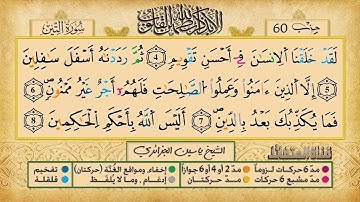 حزب 60
ألا بذكر الله تطمئن القلوب
سورة التين
لَقَدْ خَلَقْنَا ٱلْإِنسَٰنَ فِىٓ أَحْسَنِ تَقْوِيمٍ ٤ ثُمَّ رَدَدْنَٰهُ أَسْفَلَ سَٰفِلِينَ
٥ إِلَّا ٱلَّذِينَ ءَامَنُوا۟ وَعَمِلُوا۟ ٱلصَّٰلِحَٰتِ فَلَهُمْ أَجْرٌ غَيْرُ مَمْنُونٍ ٦
فَمَا يُكَذِّبُكَ بَعْدُ بِٱلدِّينِ ٧ أَلَيْسَ ٱللَّهُ بِأَحْكَمِ ٱلْحَٰكِمِينَ ٨
الشيخ ياسين الجزائري
مدّ 6 حركات لزوماً مدّ 2 أو 4 أو 6 جوازاً إخفاء، ومواقع الغُنَّة (حركتان) تفخيم
مدّ مشبع 6 حركات مدّ حركتان إدغام، وما لا يُلفَظ قلقلة